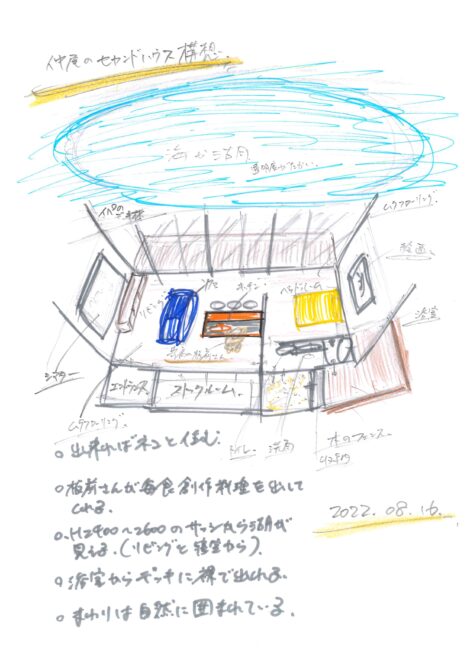 仲尾のセカンドハウス構想.
海か湖
ムクフローリング.
イペの
デッキ材
絵画。
リビング
キッチン
ベッドルーム
浴室
シャッター
エントランス
ストックルーム.
ムクフローリング.
トイレ. 洗面
木のフェンス
出来ればネコと住む.
板前さんが毎食創作料理を出して
くれる.
H2400〜2600のサッシから湖が
見える. (リビングと寝室から).
浴室からデッキに裸で出れる.
まわりは自然に囲まれている.
2022. 08. 16.